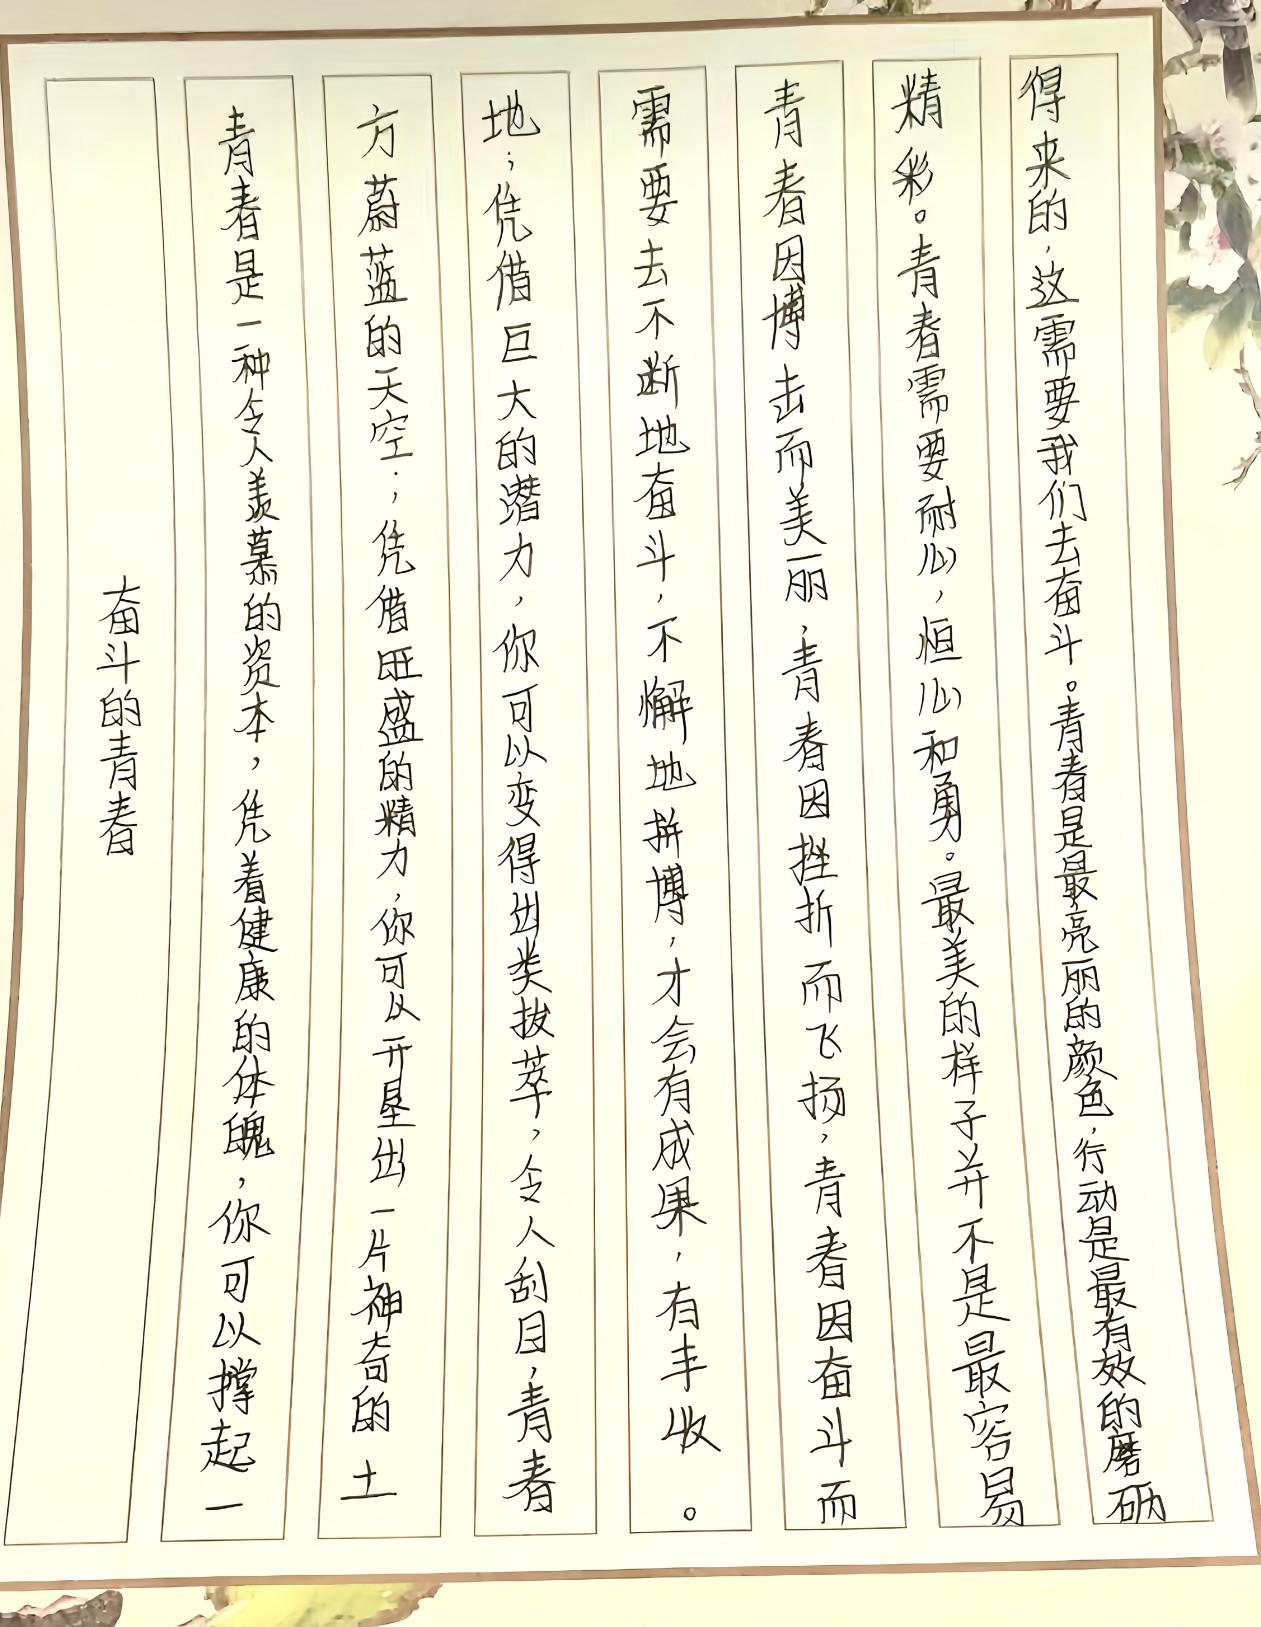 奋斗的青春
青春是一种令人羡慕的资本，凭着健康的体魄，你可以撑起一
方蔚蓝的天空；凭借旺盛的精力，你可以开垦出一片神奇的土
地；凭借巨大的潜力，你可以变得出类拔萃，令人刮目，青春
需要去不断地奋斗，不懈地拼博，才会有成果，有丰收。
青春因博击而美丽，青春因挫折而飞扬，青春因奋斗而
精彩。青春需要耐心，恒心和勇。最美的样子并不是最容易
得来的，这需要我们去奋斗。青春是最亮丽的颜色，行动是最有效的磨砺